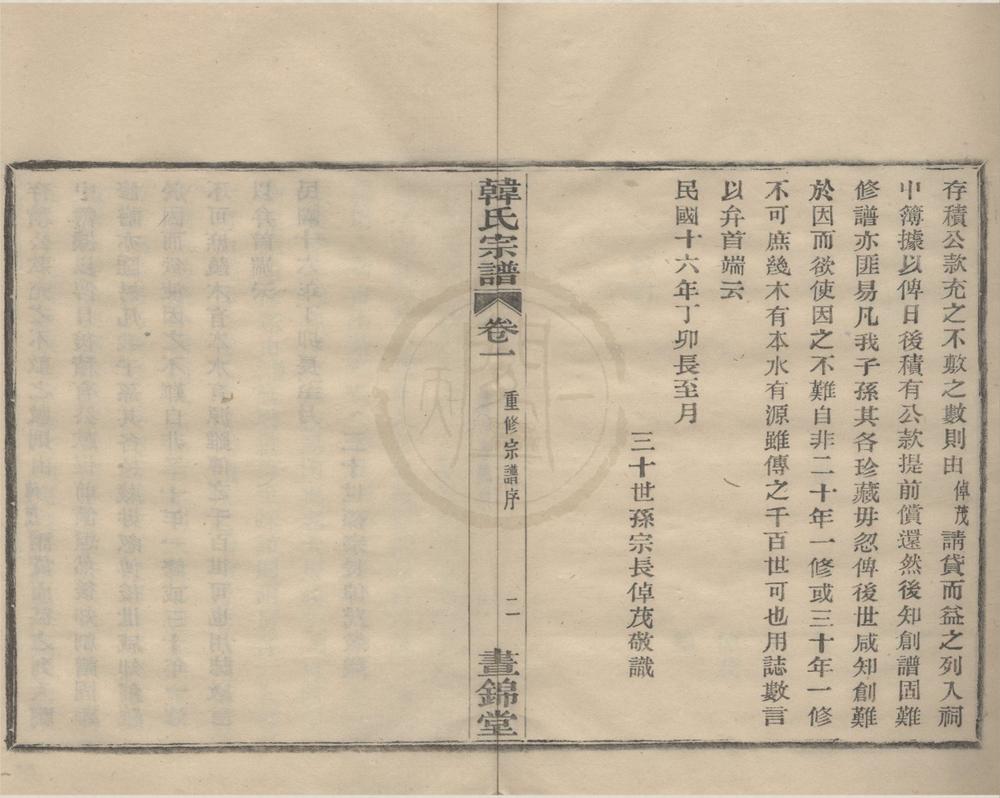 存積公款充之不敷之數則由倬茂請貸而益之列入祠
中簿據以俾日後積有公款提前償還然後知創譜固難
修譜亦匪易凡我子孫其各珍藏毋忽俾後世咸知創難
於因而欲使因之不難自非二十年一修或三十年一修
不可庶幾木有本水有源雖傳之千百世可也用誌數言
以弁首端云
民國十六年丁卯長至月
三十世孫宗長倬茂敬識
韓氏宗譜 卷一 重修宗譜序 二 晝錦堂